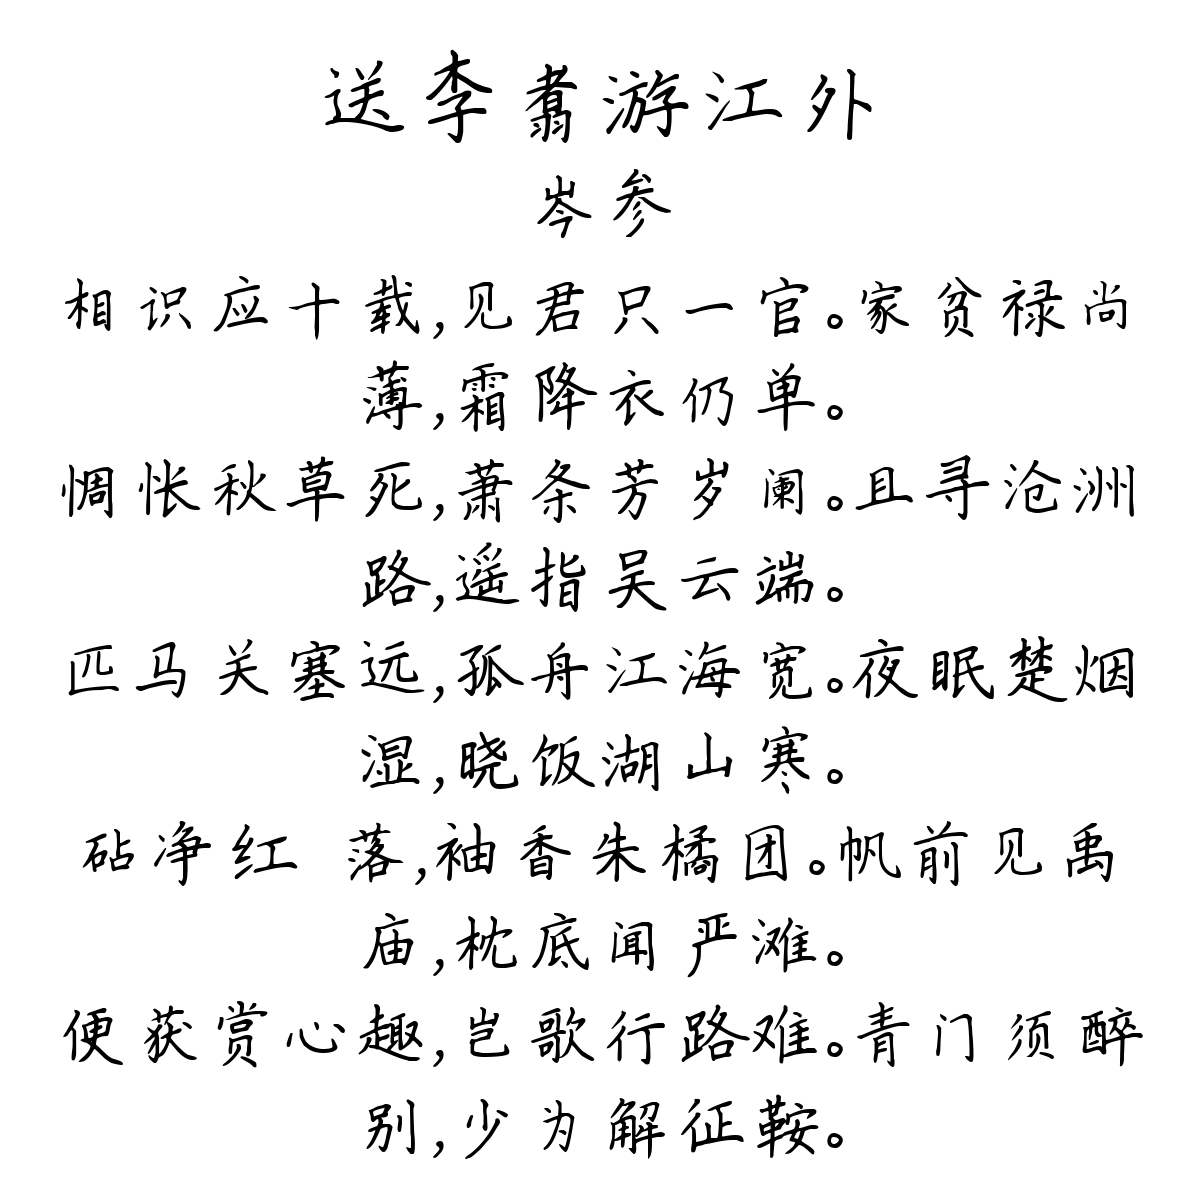 送李翥游江外
岑参
相识应十载,见君只一官。家贫禄尚
薄,霜降衣仍单。
惆怅秋草死,萧条芳岁阑。且寻沧洲
路,遥指吴云端。
匹马关塞远,孤舟江海宽。夜眠楚烟
湿,晓饭湖山寒。
砧净红 落,袖香朱橘团。帆前见禹
庙,枕底闻严滩。
便获赏心趣,岂歌行路难。青门须醉
别,少为解征鞍。